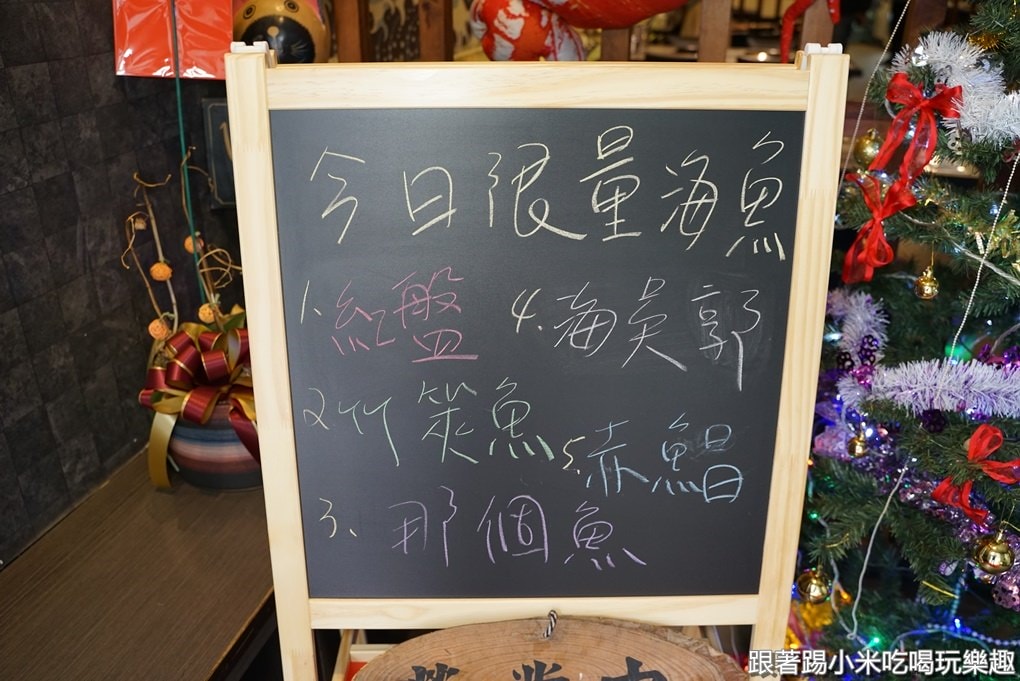 今日限量海魚
1. 紅盤
2 竹筴魚
3、那個魚
4、海吳郭
5、赤鯝
營業中
跟著踢小米吃喝玩樂趣